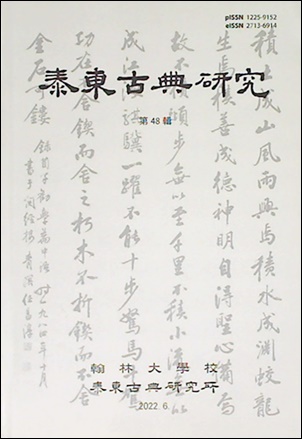 pISSN 1225-9152
eISSN 2713-6914
泰東古典硏究
第 48 輯
積土成山風雨興焉積水成淵蛟龍
生焉積善成德神明自得聖心備焉
故不積步無以至千里不積小流無以
成江海騏驥一躍不能十步駑馬十駕
功在不舍鍥而舍之朽木不折鍥而不舍
金石可鏤 錄荀子勸學篇中語 時一九八四年十月
翰林大學校
泰東古典硏究所
2022. 6.